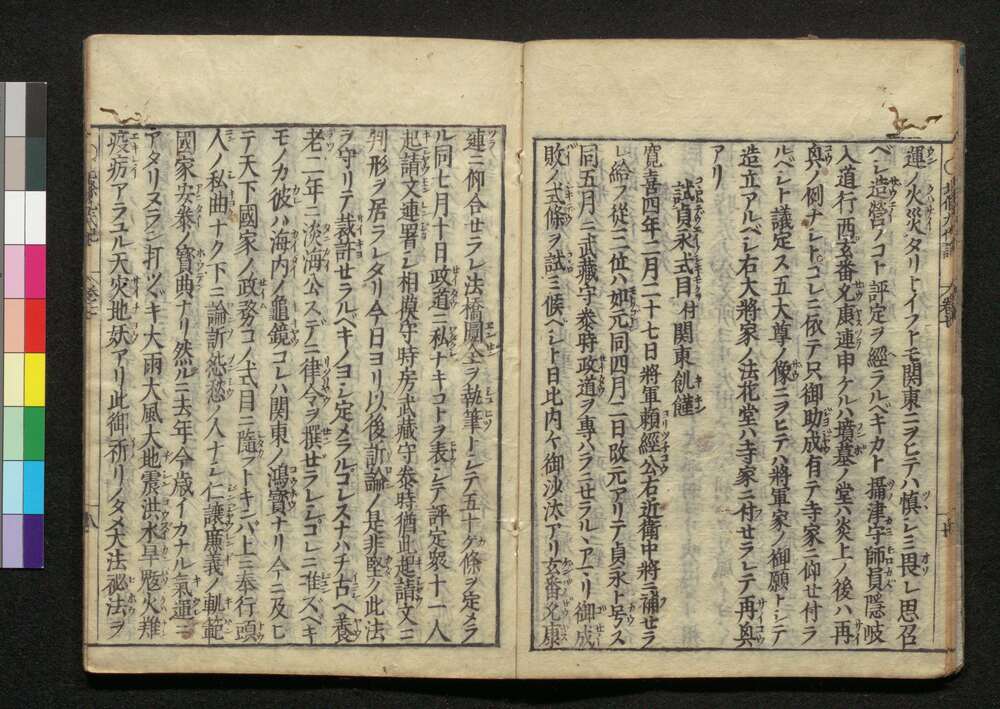 運ノ火災タリトイフトモ関東ニヲヒテハ慎シミ畏レ思召
ベシ造營ノコト評定ヲ經ラルベキカト攝津守師員隠岐
入道行西玄番允康連申ケルハ墳墓ノ堂ハ炎上ノ後ハ再
興ノ例ナシトコレニ依テ只御助成有テ寺家ニ仰せ付ラ
ルベシト議定ス五大尊ノ像ニヲヒテハ將軍家ノ御願トシテ
造立アルベシ右大將家ノ法花堂ハ寺家ニ付せラレテ再興
アリ
試貞永式目付関東飢饉
寛喜四年二月二十七日將軍頼經公右近衛中將ニ補せラ
レ給フ從三位ハ如元同四月二日改元アリテ貞永ト号ス
同五月ニ武藏守泰時政道ヲ專ハラニせラルヽアマリ御成
敗ノ式條ヲ試ミ候ベシト日比内々御沙汰アリ玄番允康
連ニ仰合せラレ法橋圓全ヲ執筆トシテ五十ヶ條ヲ定メラ
ル同七月十日政道ニ私ナキコトヲ表シテ評定衆十一人
起請文連署シ相摸守時房武藏守泰時猶此起請文ニ
判形ヲ居ラレタリ今日ヨリ以後訴論ノ是非堅ク此法
ヲ守リテ裁許せラルベキノヨシ定メラルコレスナハチ古ヘ養
老二年ニ淡海公ステニ律令ヲ撰せラレシコレニ准ズベキ
モノカ彼ハ海内ノ龜鏡コレハ関東ノ鴻寳ナリ今ニ及ヒ
テ天下國家ノ政務コノ式目ニ隨フトキンバ上ニ奉行頭
人ノ私曲ナク下ニ論訴怨愁ノ人ナシ仁讓廉義ノ軌範
國家安泰ノ寳典ナリ然ルニ去年今歳イカナル氣運ニ
アタリヌラン打ツヾキ大雨大風大地震洪水旱魃火難
疫疠アラユル天災地妖アリ此御祈リノタメ大法祕法ヲ